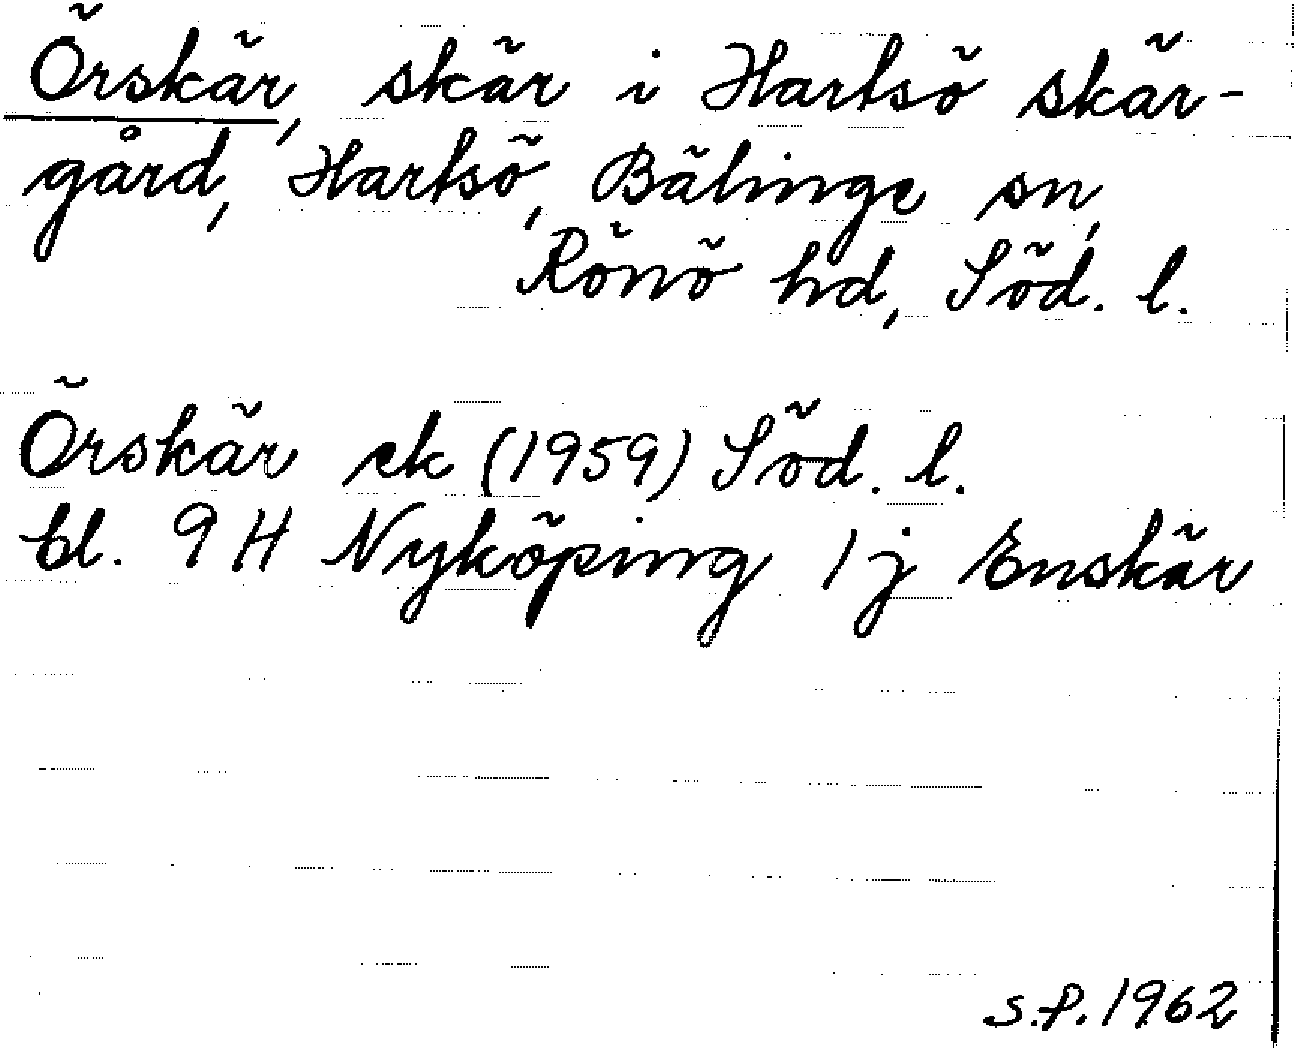 Örskär, skär i Hartsö skär-
gård, Hartsö, Bälinge sn,
Rönö hd, Söd. l.
Örskär ek (1959) Söd. l.
bl. 9 H Nyköping 1 j Enskär
S.P. 1962